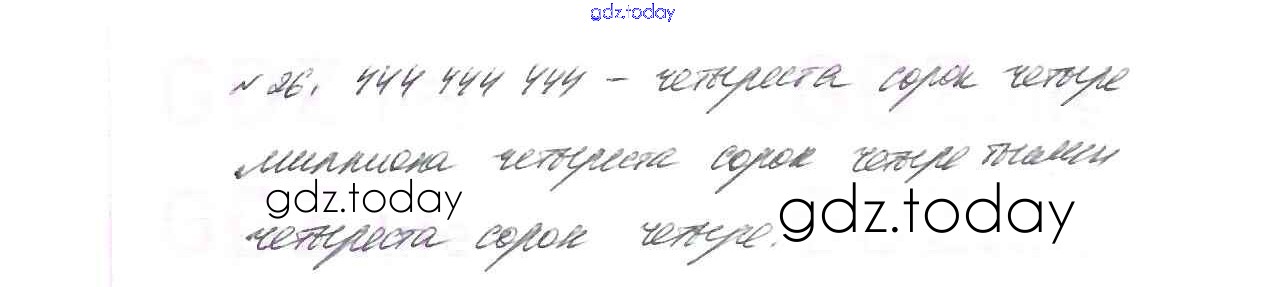 gdz.today
№ 26. 444 444 444 – четыреста сорок четыре
миллиона четыреста сорок четыре тысячи
gdz.today
gdz.today
четыреста сорок четыре.